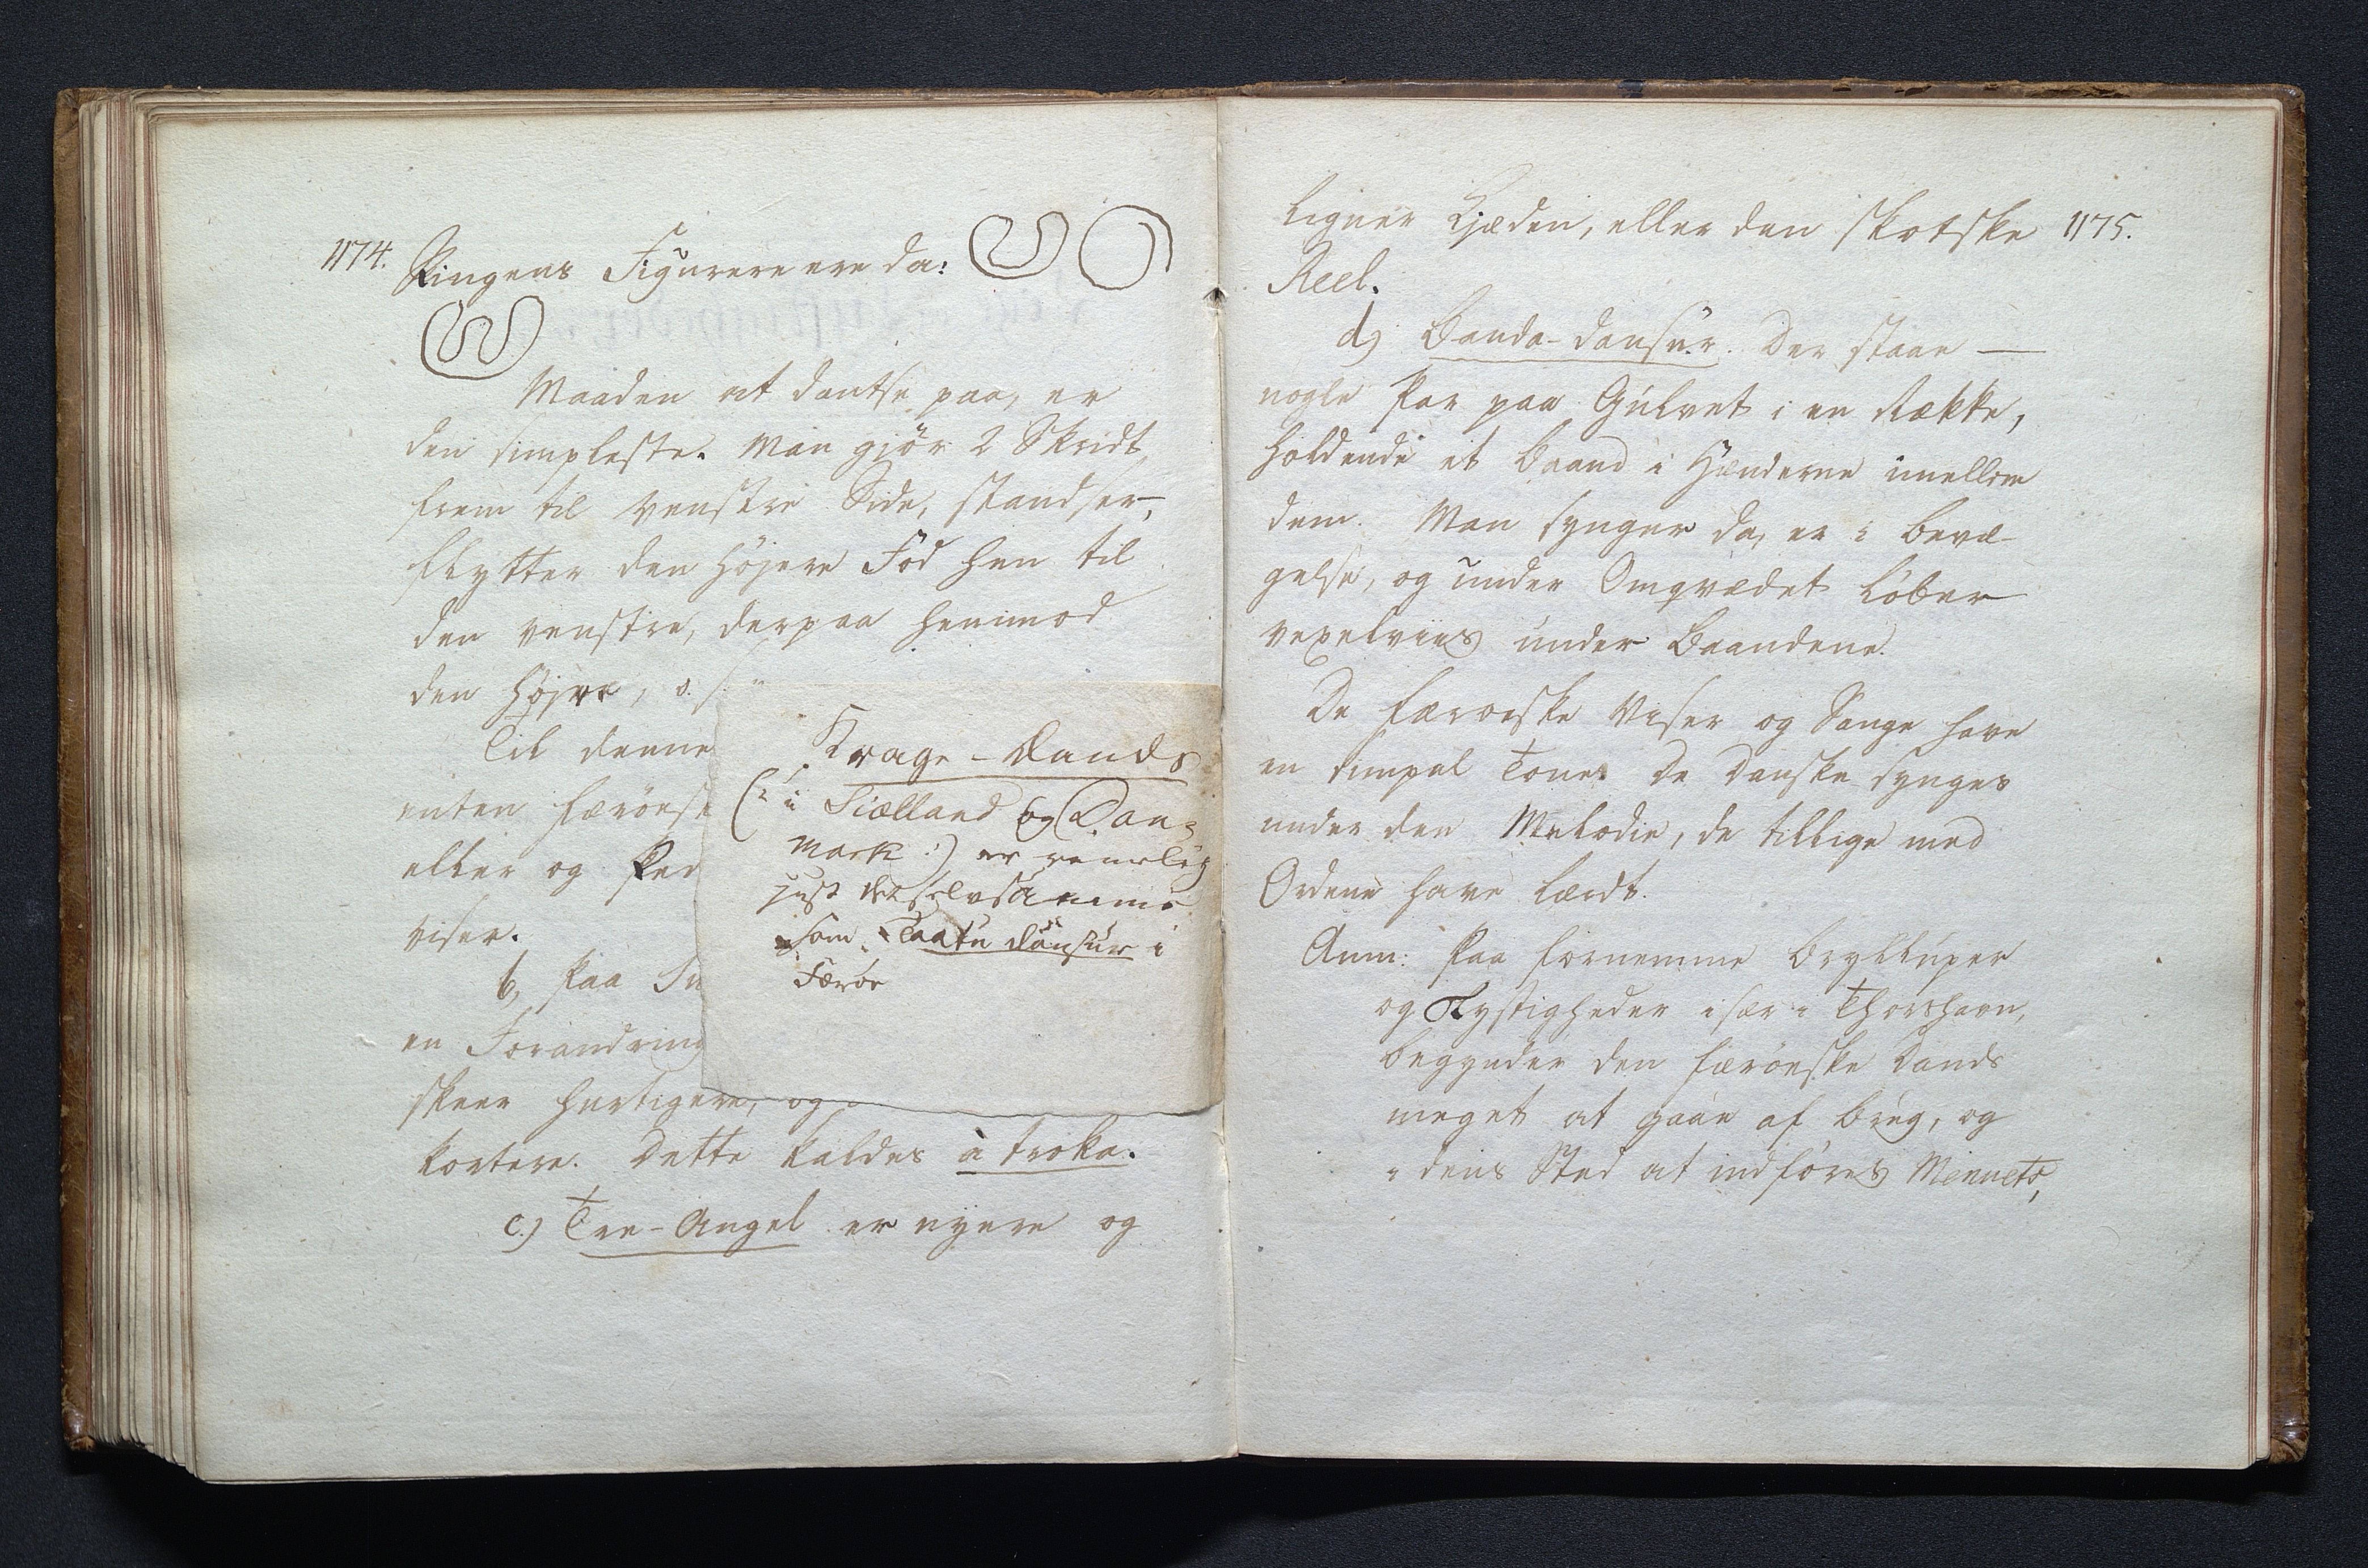 1174.
Ringens Figurere ere da:
Maaden at dantse paa, er
den simpleste. Man gjör 2 Skridt
frem til venstre Side, standser,
flytter den höjere Fod hen til
den venstre, derpaa henimod
den höjre, o. s.
Til denne
enten færöesk
eller og
viser.
b, Paa
en Forandring
skeer hurtigere, og
kortere. Dette kaldes à troka.
c.) Tre-Angel er nyere og
Krage-Dands
(: i Siælland og Dan=
mark :) er
just det selvsamme
som Taatu dansur i
Færöe
1175.
ligner Kjæden, eller den skotske
Reel.
d) Banda-dansur. Der staae —
nogle Par paa Gulvet i en Række,
holdende et Baand i Hænderne imellem
dem. Man synger da, er i bevæ-
gelse, og under Omqvædet löber
vexelviis under Baandene.
De færoeske Viser og Sange have
en simpel Tone. De danske synges
under den Melodie, de tillige med
Ordene have lærdt.
Anm: Paa fornemme Brylluper
og Lystigheder især i Thorshavn,
begynder den færöeske Dands
meget at gaae af brug, og
i dens Sted at indföres Menuets,